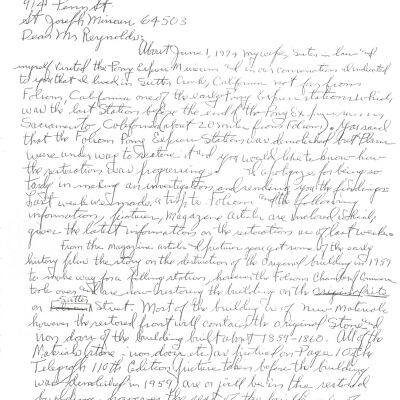 914 Penn St.
St Joseph Missouri 64503
Dear Mr Reynolds:
About June 1, 1974 my wife, sister in law and
myself visited the Pony Express Museum and in our conversation I indicated
to you that I lived in Sutter Creek, California not far from
Folsom, California one of the early Pony Express stations which
was the last Station before the end of the Pony Express run in
Sacramento California (about 20 miles from Folsom). You said
that the Folsom Pony Express Station was demolished but plans
were under way to restore it and you would like to know how
the restoration was progressing. I apologize for being so
tardy in making an investigation and rendering you the findings.
Last week we made a trip to Folsom and the following
information, pictures, Magazine article are inclosed which
gives the latest information on the restoration as of last week.
From the Magazine article and pictures you get some of the early
history plus the story on the destruction of the original building in 1959
to make way for a filling station, however the Folsom Chamber Commerce
took over and are now restoring the building on the original site
on Sutter Street. Most of the building is of new Materials
however the restored front wall contains the original Stone and
iron doors of the building built about 1859-1860. All of the
Materials, stone - iron doors etc as pictured on Page 10 of the
Telegraph 110th Edition (picture taken before the building
was demolished in 1959) are or will be in the restored
building, however the rest of the